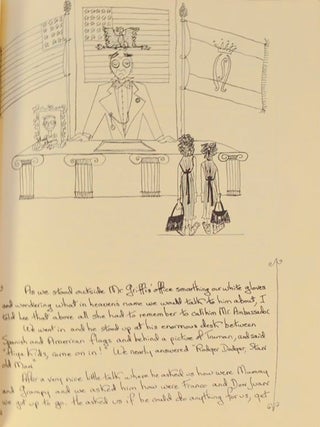 As we stood outside Mr. Griffis' office smoothing our white gloves
and wondering what in heaven's name we would talk to him about, I
told Lee that above all she had to remember to call him Mr. Ambassador.
We went in and he stood up at his enormous desk between
Spanish and American flags and behind a picture of Truman, and said
"Hiya kids, come on in". We nearly answered "Rodger Dodger,
old Man"
After a very nice little talk where he asked us how were Mummy
and Grampy and we asked him how were Franco and Don Juan
we got up to go. He asked us if he could do anything for us, get